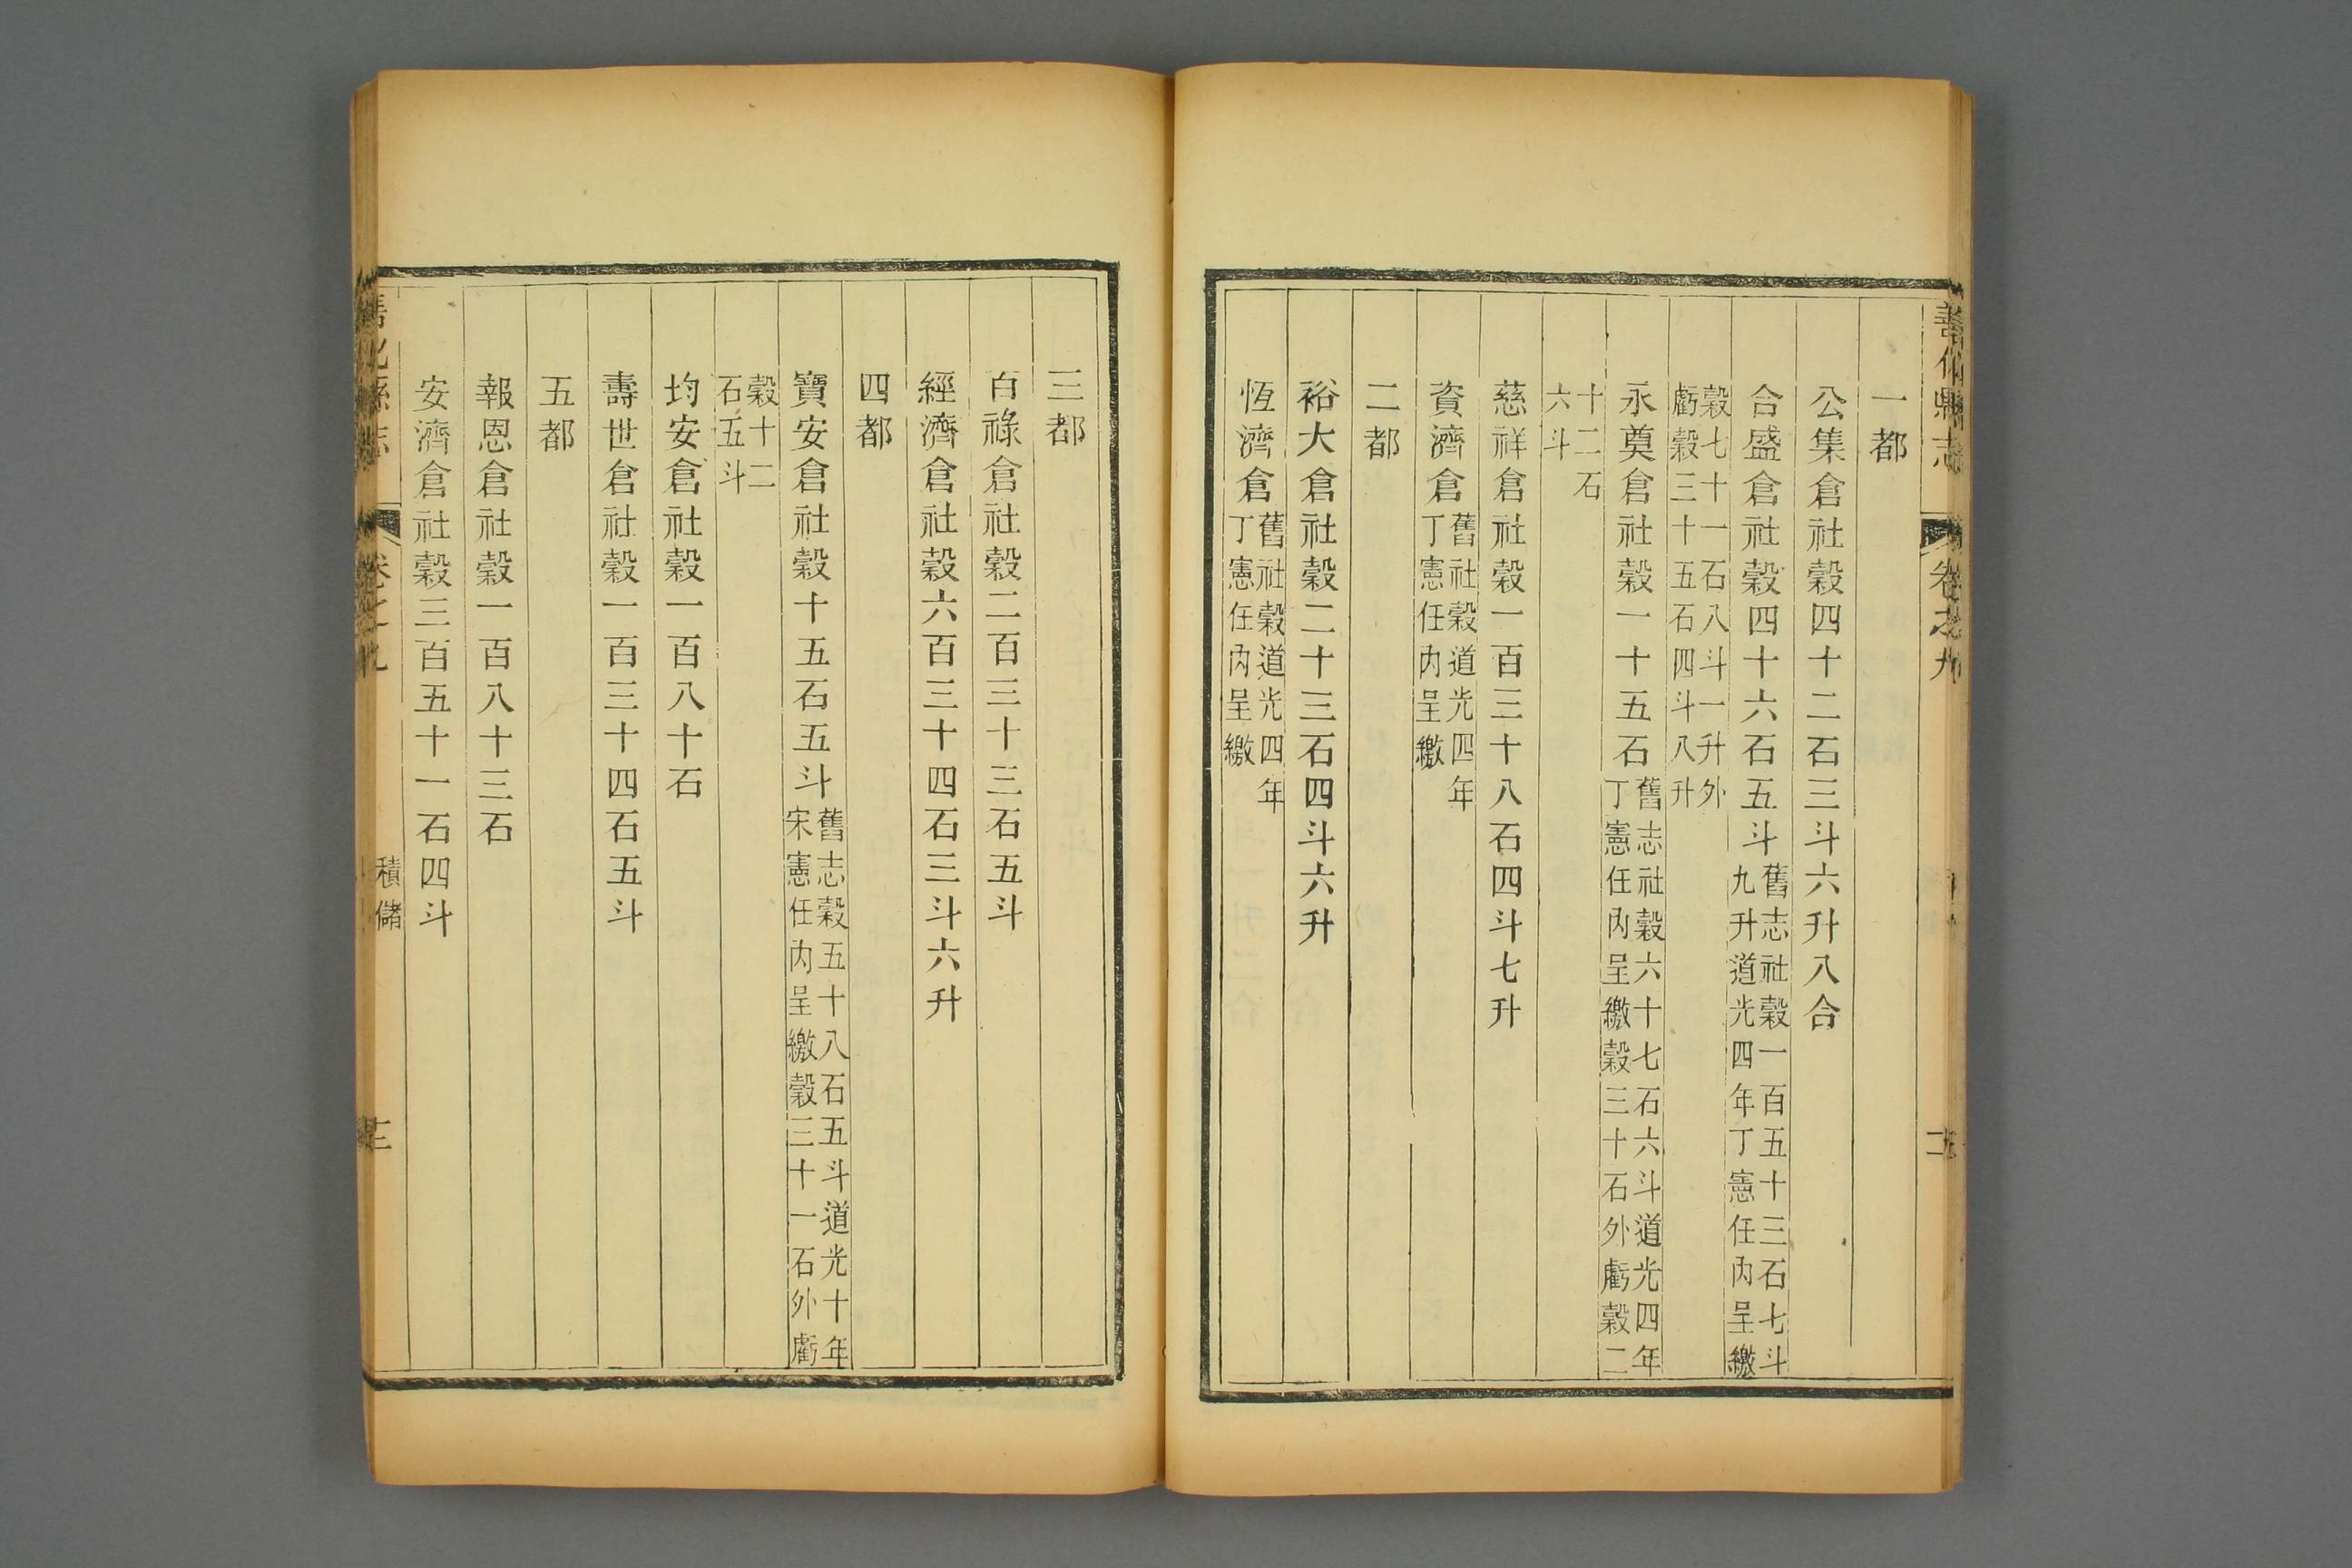 善化縣志
卷之九
一都
公集倉社穀四十二石三斗六升八合
合盛倉社穀四十六石五斗舊志社穀一百五十三石七斗九升道光四年丁憲任內呈繳
穀七十一石八斗一升外虧穀三十五石四斗八升
永奠倉社穀一十五石舊志社穀六十七石六斗道光四年丁憲任內呈繳穀三十石外虧穀二
十二石六斗
慈祥倉社穀一百三十八石四斗七升
資濟倉舊社穀道光四年丁憲任內呈繳
二都
裕大倉社穀二十三石四斗六升
恆濟倉舊社穀道光四年丁憲任內呈繳
三都
百祿倉社穀二百三十三石五斗
經濟倉社穀六百三十四石三斗六升
四都
寶安倉社穀十五石五斗舊志穀五十八石五斗道光十年宋憲任內呈繳穀三十一石外虧
穀十二石五斗
均安倉社穀一百八十石
壽世倉社穀一百三十四石五斗
五都
報恩倉社穀一百八十三石
安濟倉社穀三百五十一石四斗
善化縣志
卷之九
積儲